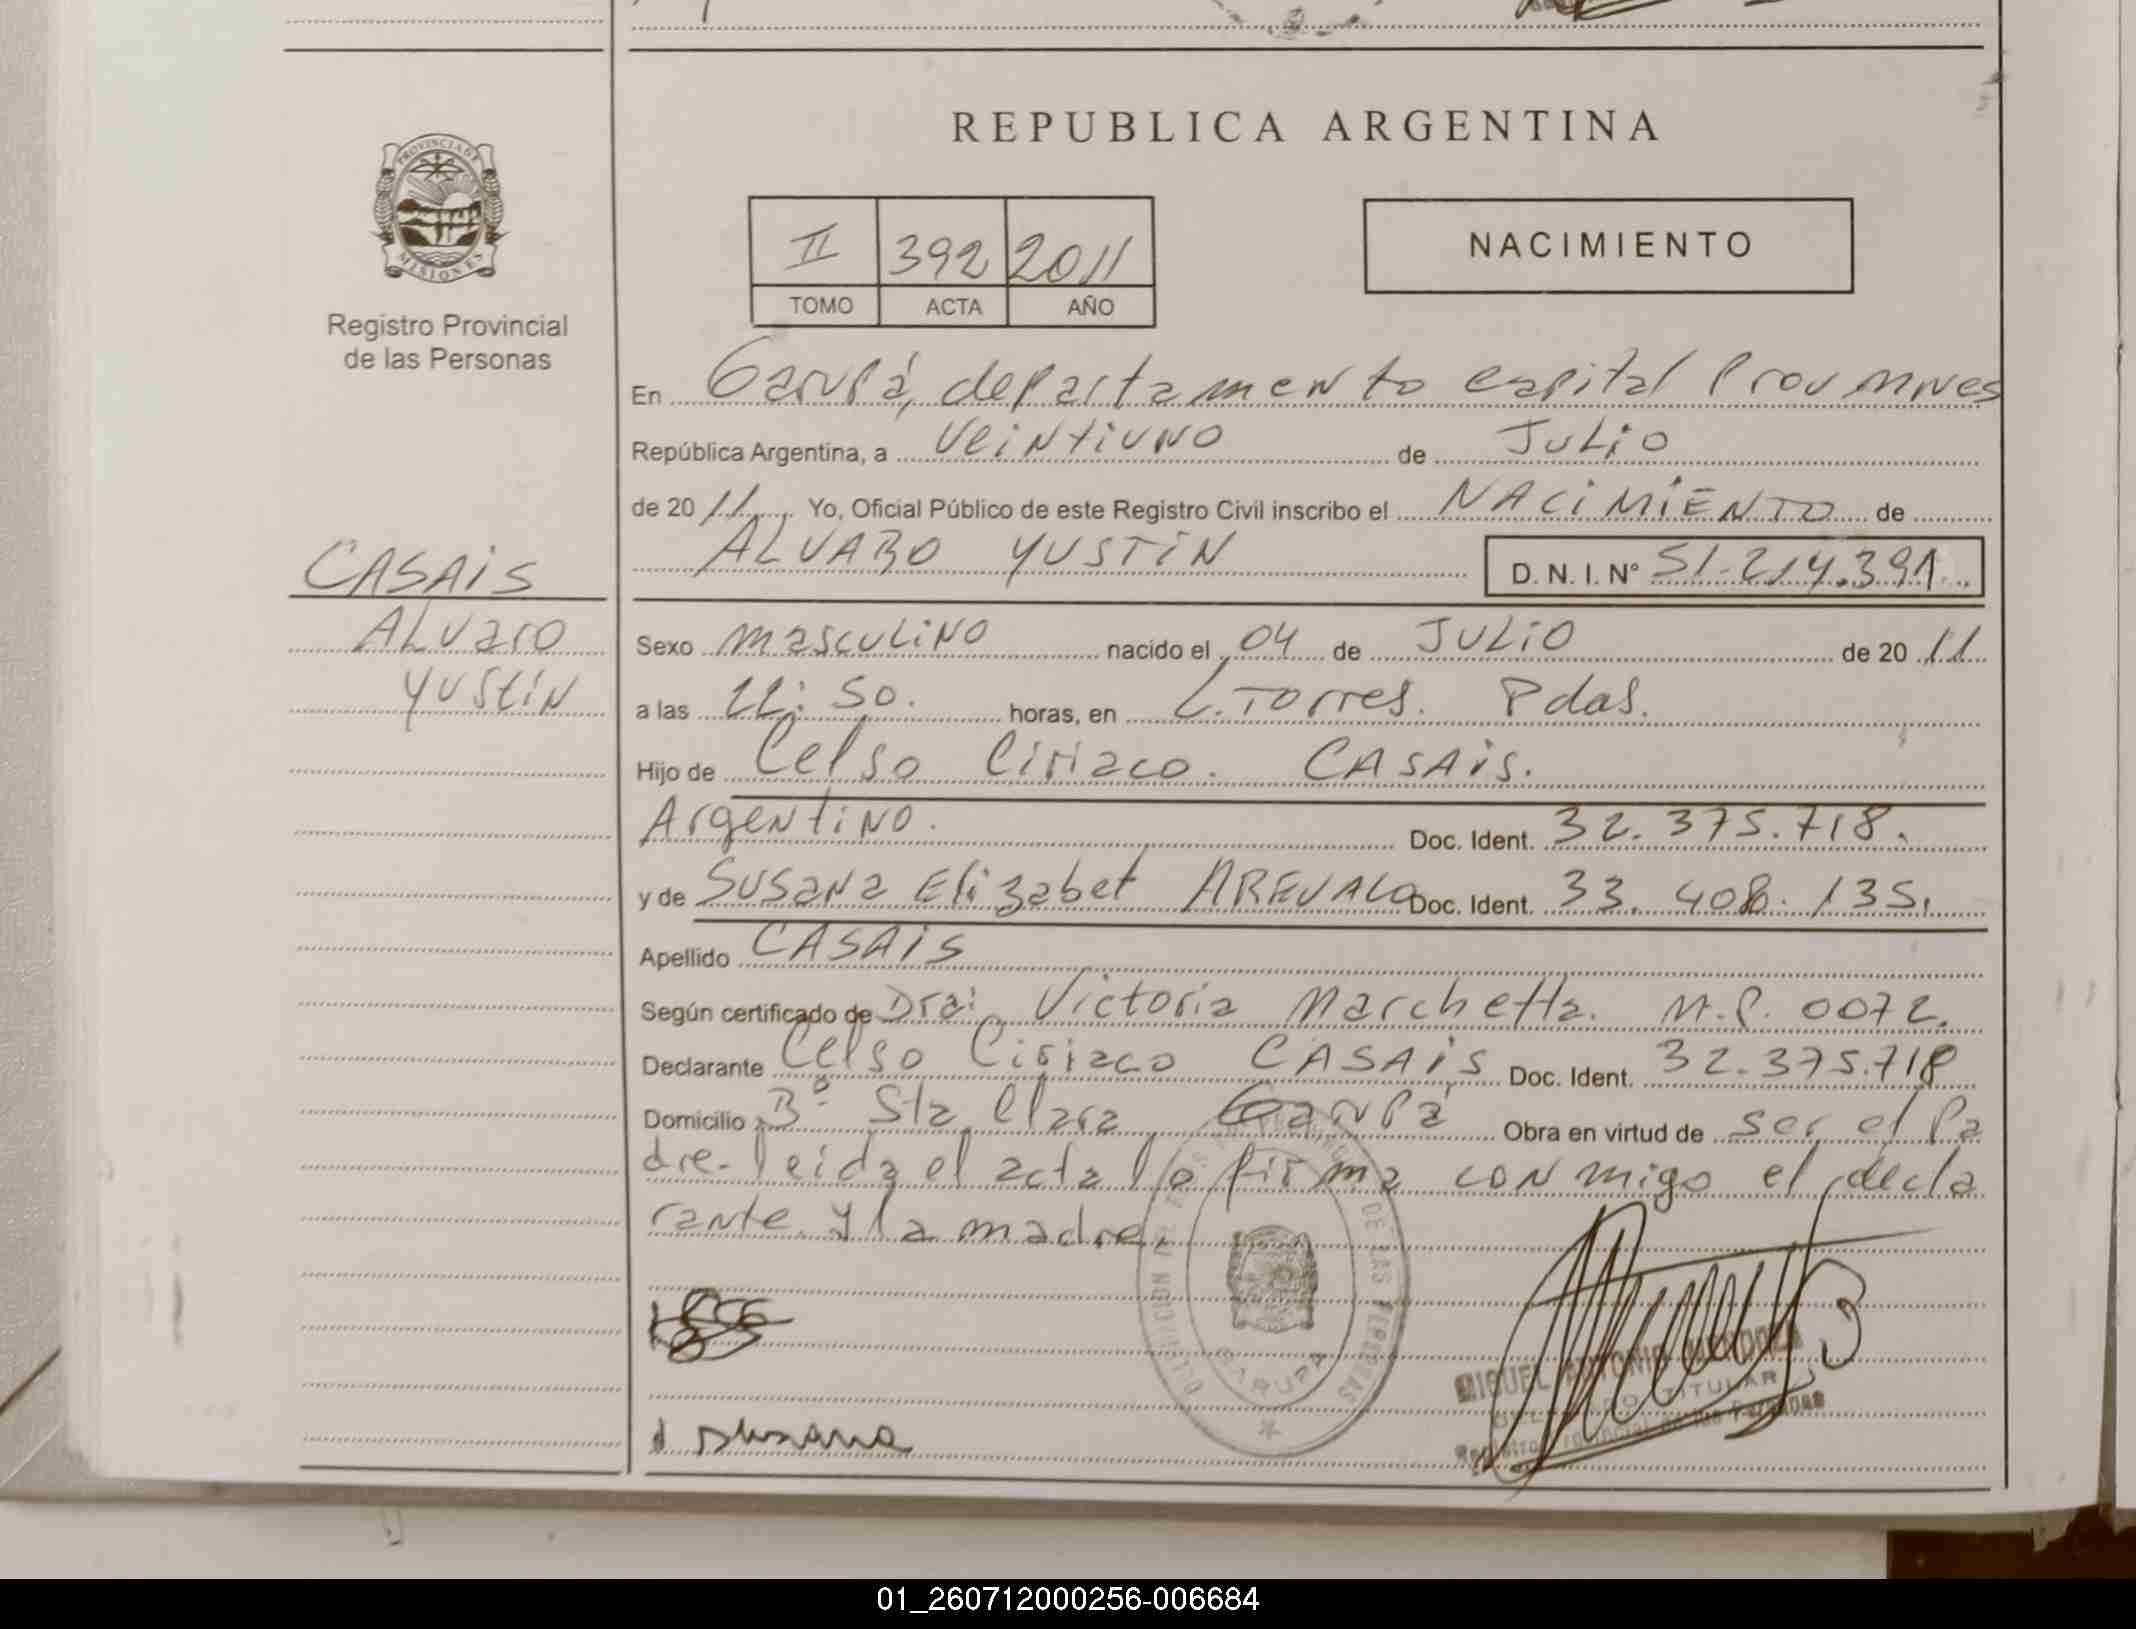 REPUBLICA ARGENTINA
PROVINCIA DE
MISIONES
Registro Provincial
de las Personas
II 392 2011
TOMO ACTA AÑO
NACIMIENTO
En Garupá, departamento capital Prov Mnes
República Argentina, a veintiuno de Julio
de 2011 Yo, Oficial Público de este Registro Civil inscribo el NACIMIENTO de
ALVARO YUSTIN D. N. I. N° 51.214.391
CASAIS
ALvaro
YUStiN
Sexo masculino nacido el 04 de JULIO de 2011
a las 11:50. horas, en L. Torres. Pdas.
Hijo de Celso Ciriaco. CASAIS.
Argentino. Doc. Ident. 32.375.718.
y de Susana Elizabet AREVALO Doc. Ident. 33.408.135.
Apellido CASAIS
Según certificado de Dra: Victoria Marchetta. M.P. 0072.
Declarante Celso Ciriaco CASAIS Doc. Ident. 32.375.718
Domicilio B° Sta Clara Garupá Obra en virtud de ser el Pa
dre- leida el acta la firma conmigo el decla
rante y la madre.
DE LAS PERSONAS
GARUPA
Susana
MIGUEL ANTONIO MENDOZA
TITULAR
Registro Provincial de las Personas
01_260712000256-006684